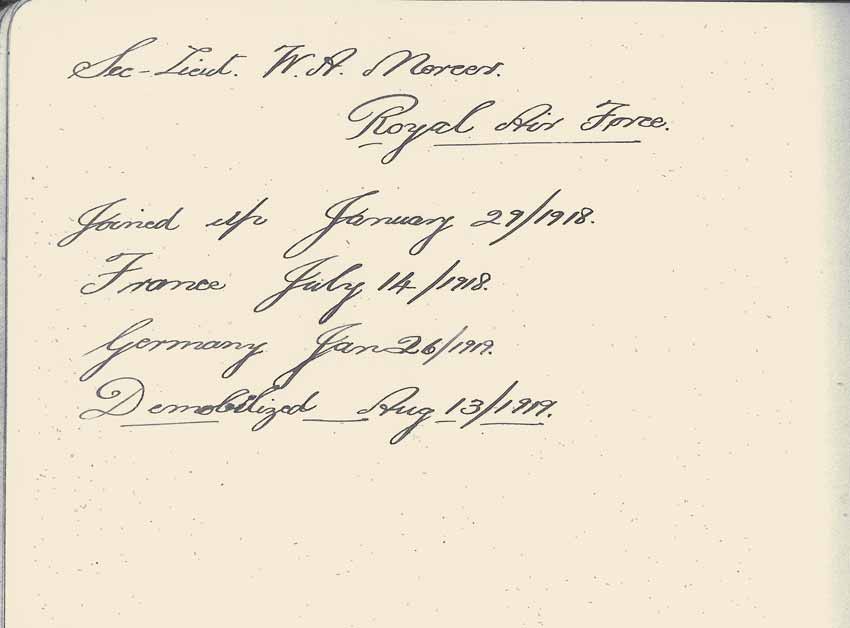 Sec-Lieut. W. A. Mercer.
Royal Air Force.
Joined up January 29/1918.
France July 14/1918.
Germany Jan 26/1919.
Demobilized Aug 13/1919.